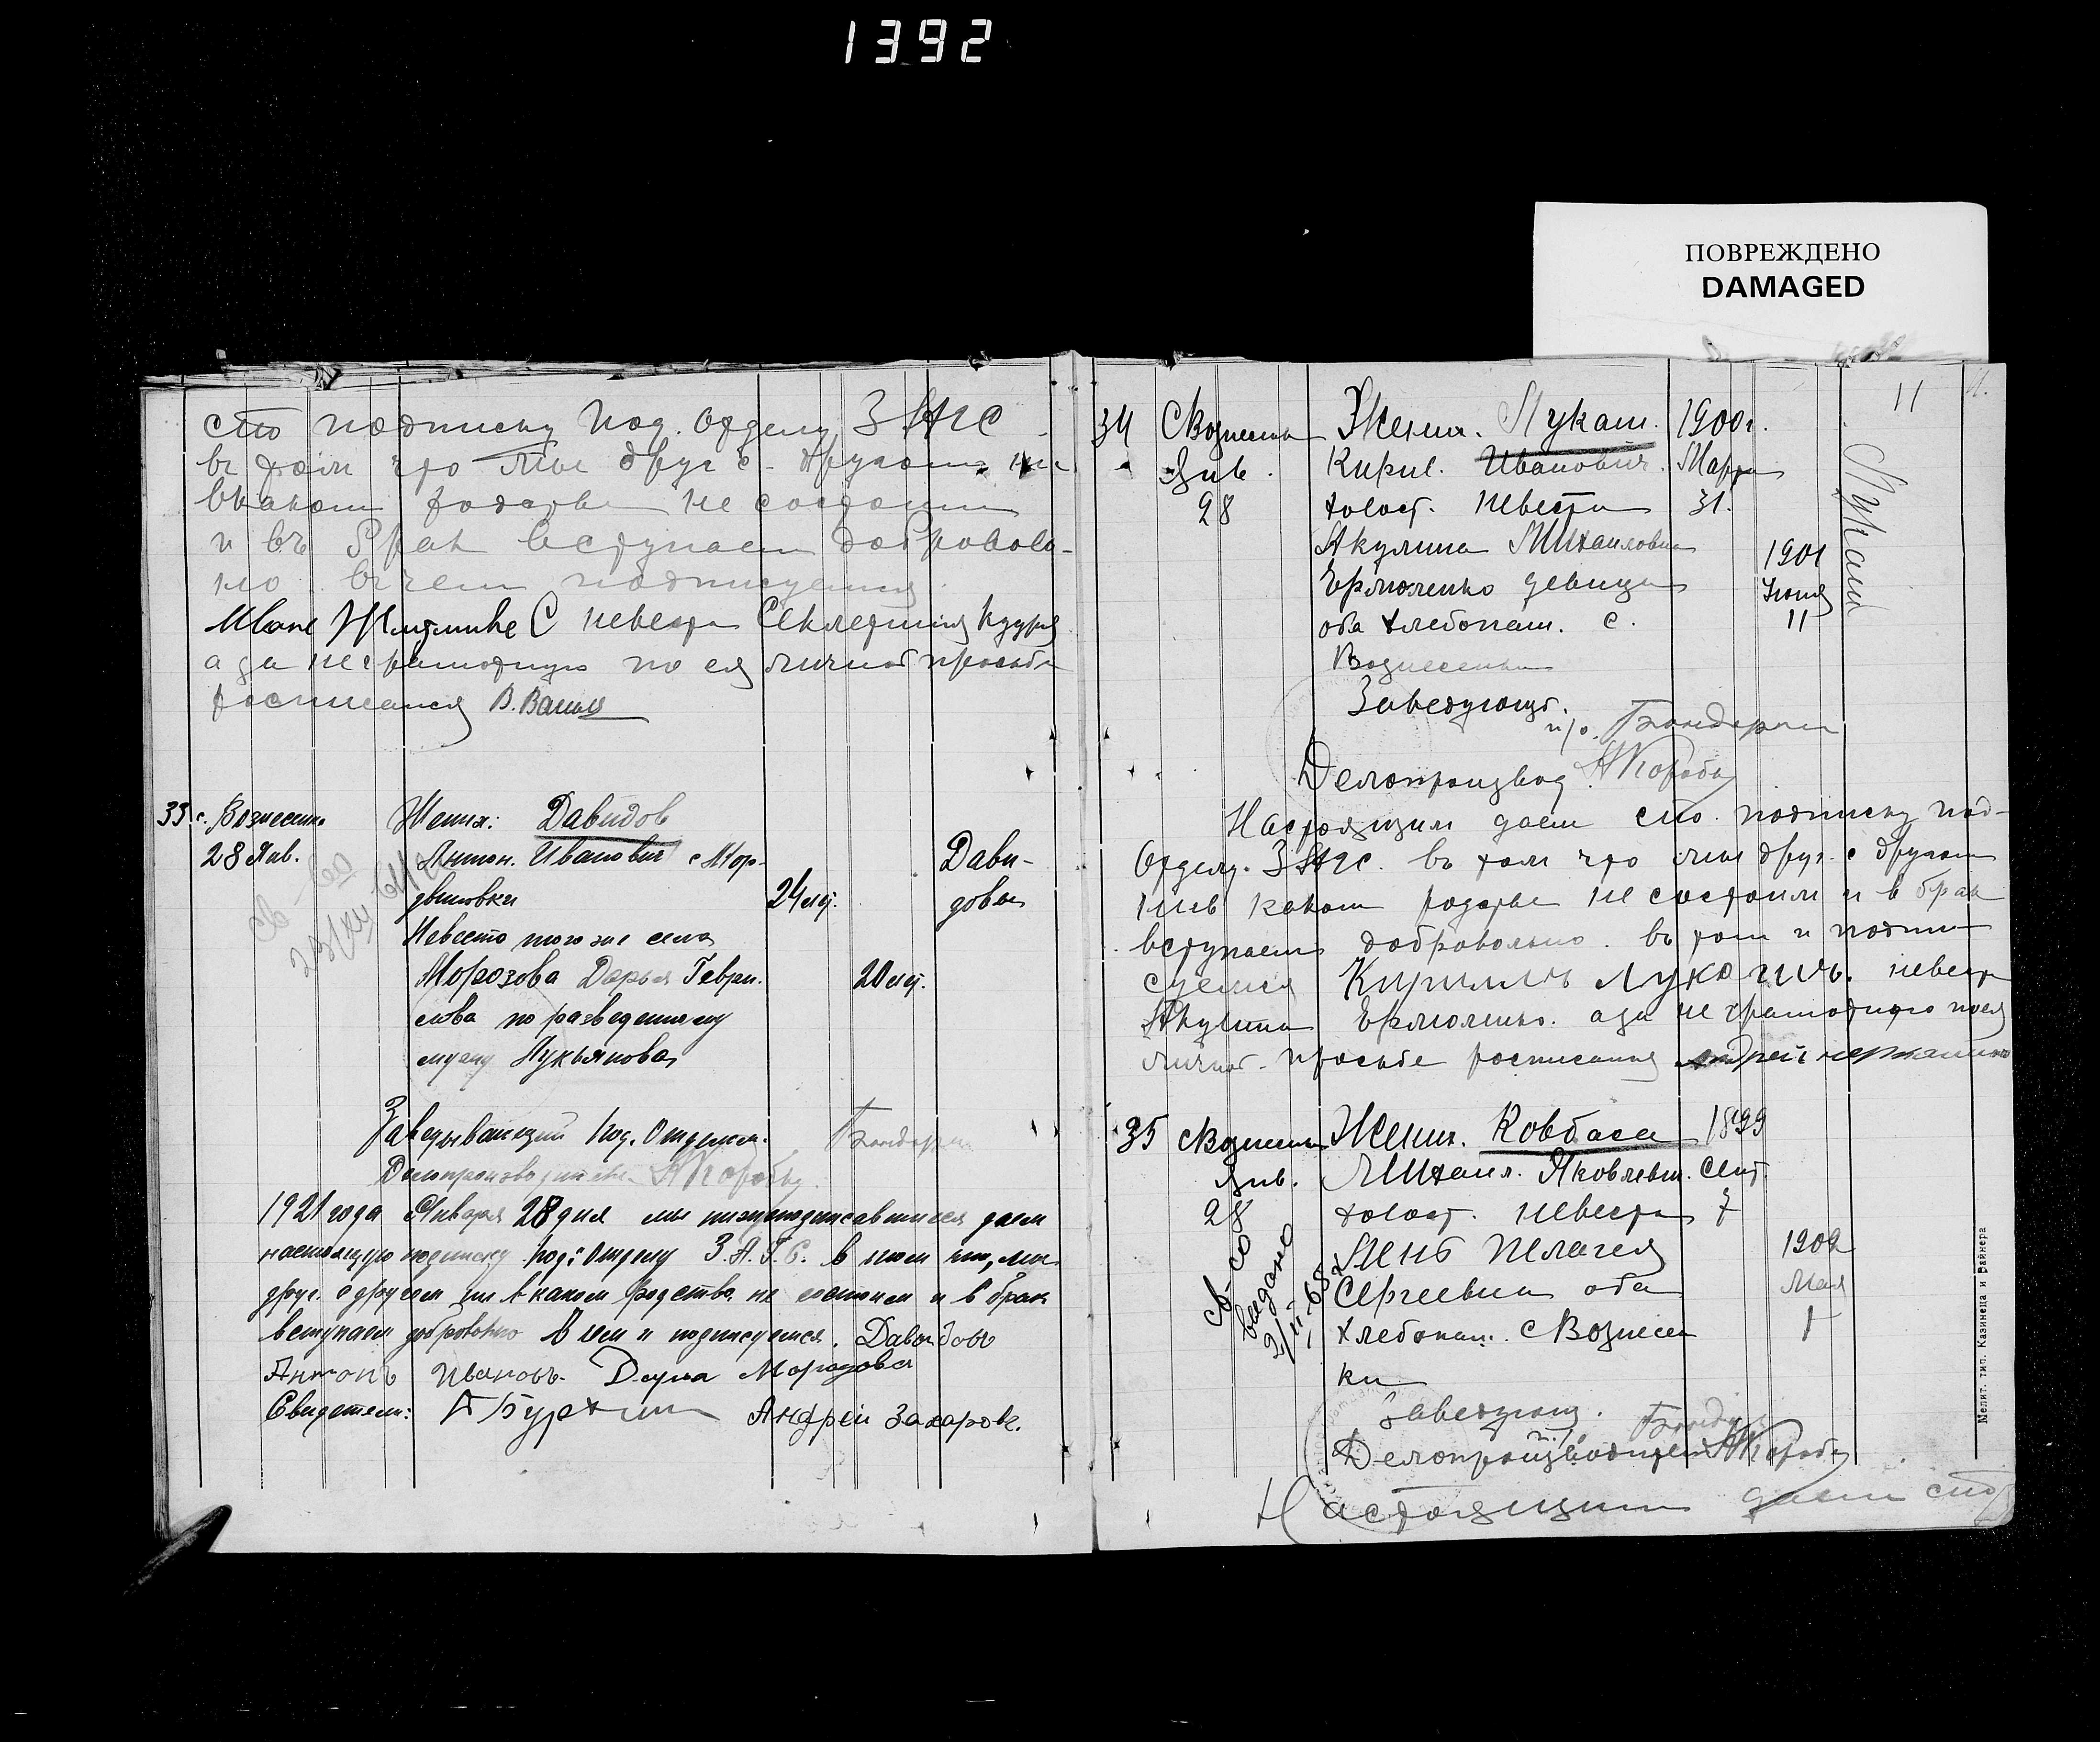 1392
ПОВРЕЖДЕНО
DAMAGED
сию подписку Под. Отделу ЗАГС
въ том что мы друг с другом ни
в каком родстве не состоим
и въ брак вступаем доброволь-
но в чем подписуемся
Иван С невеста Секлетиния
а за неграмотную по ея личной просьбе
росписался В.
33 с. Вознесенка
28 Янв.
Жених: Давидов
Антон. Иванович с Мор-
двиновки
24 лет.
Дави-
довы
Невеста того же села
Морозова Дарья Гаври-
20 лет.
лова по разведенному
мужу Лукьянова
св-во
Заведывающий Под. Отделом.
Делопроизводитель
1921 года Января 28 дня мы нижеподписавшиеся даем
настоящую подписку Под. Отделу З.А.Г.С. в том что, мы
друг с другом ни в каком родстве не состоим и в брак
вступаем добровольно В чем и подписуемся. Давидовъ
Антонъ Ивановъ Морозова
Свидетели: Андрей Захаров.
11
34 С Вознесенка
Янв.
28
Жених. Лукаш.
1900г.
Кирил. Иванович.
Марта
холост. невеста
31.
Акулина Михаиловна
Ермоленко девица
1901
Июня
11
оба хлебопаш. с.
Вознесенки
Лукаш
Заведующ.
п/о. Бондарен
Делопроизвод.
Настоящим даем сию подписку под-
отделу ЗАГС. въ том что мы друг с другом
ни в каком родстве не состоим и в брак
вступаем добровольно. въ том и подпи-
суемся Кириллъ Лукашъ. невеста
Акулина Ермоленко. а за не грамотную по ея
личной просьбе росписался
35 с Вознесенка
Янв.
28
Жених. Ковбаса
1899
Михаил. Яковлевич.
Сент.
7
холост. невеста
Лень Пелагея
1902
Мая
1
Сергеевна оба
хлебопаш. с Вознесен
ки
св-во
выдано
Заведующ.
Делопроизводитель
Настоящим даем сию
Мелит. тип. Казинеца и Вайнера